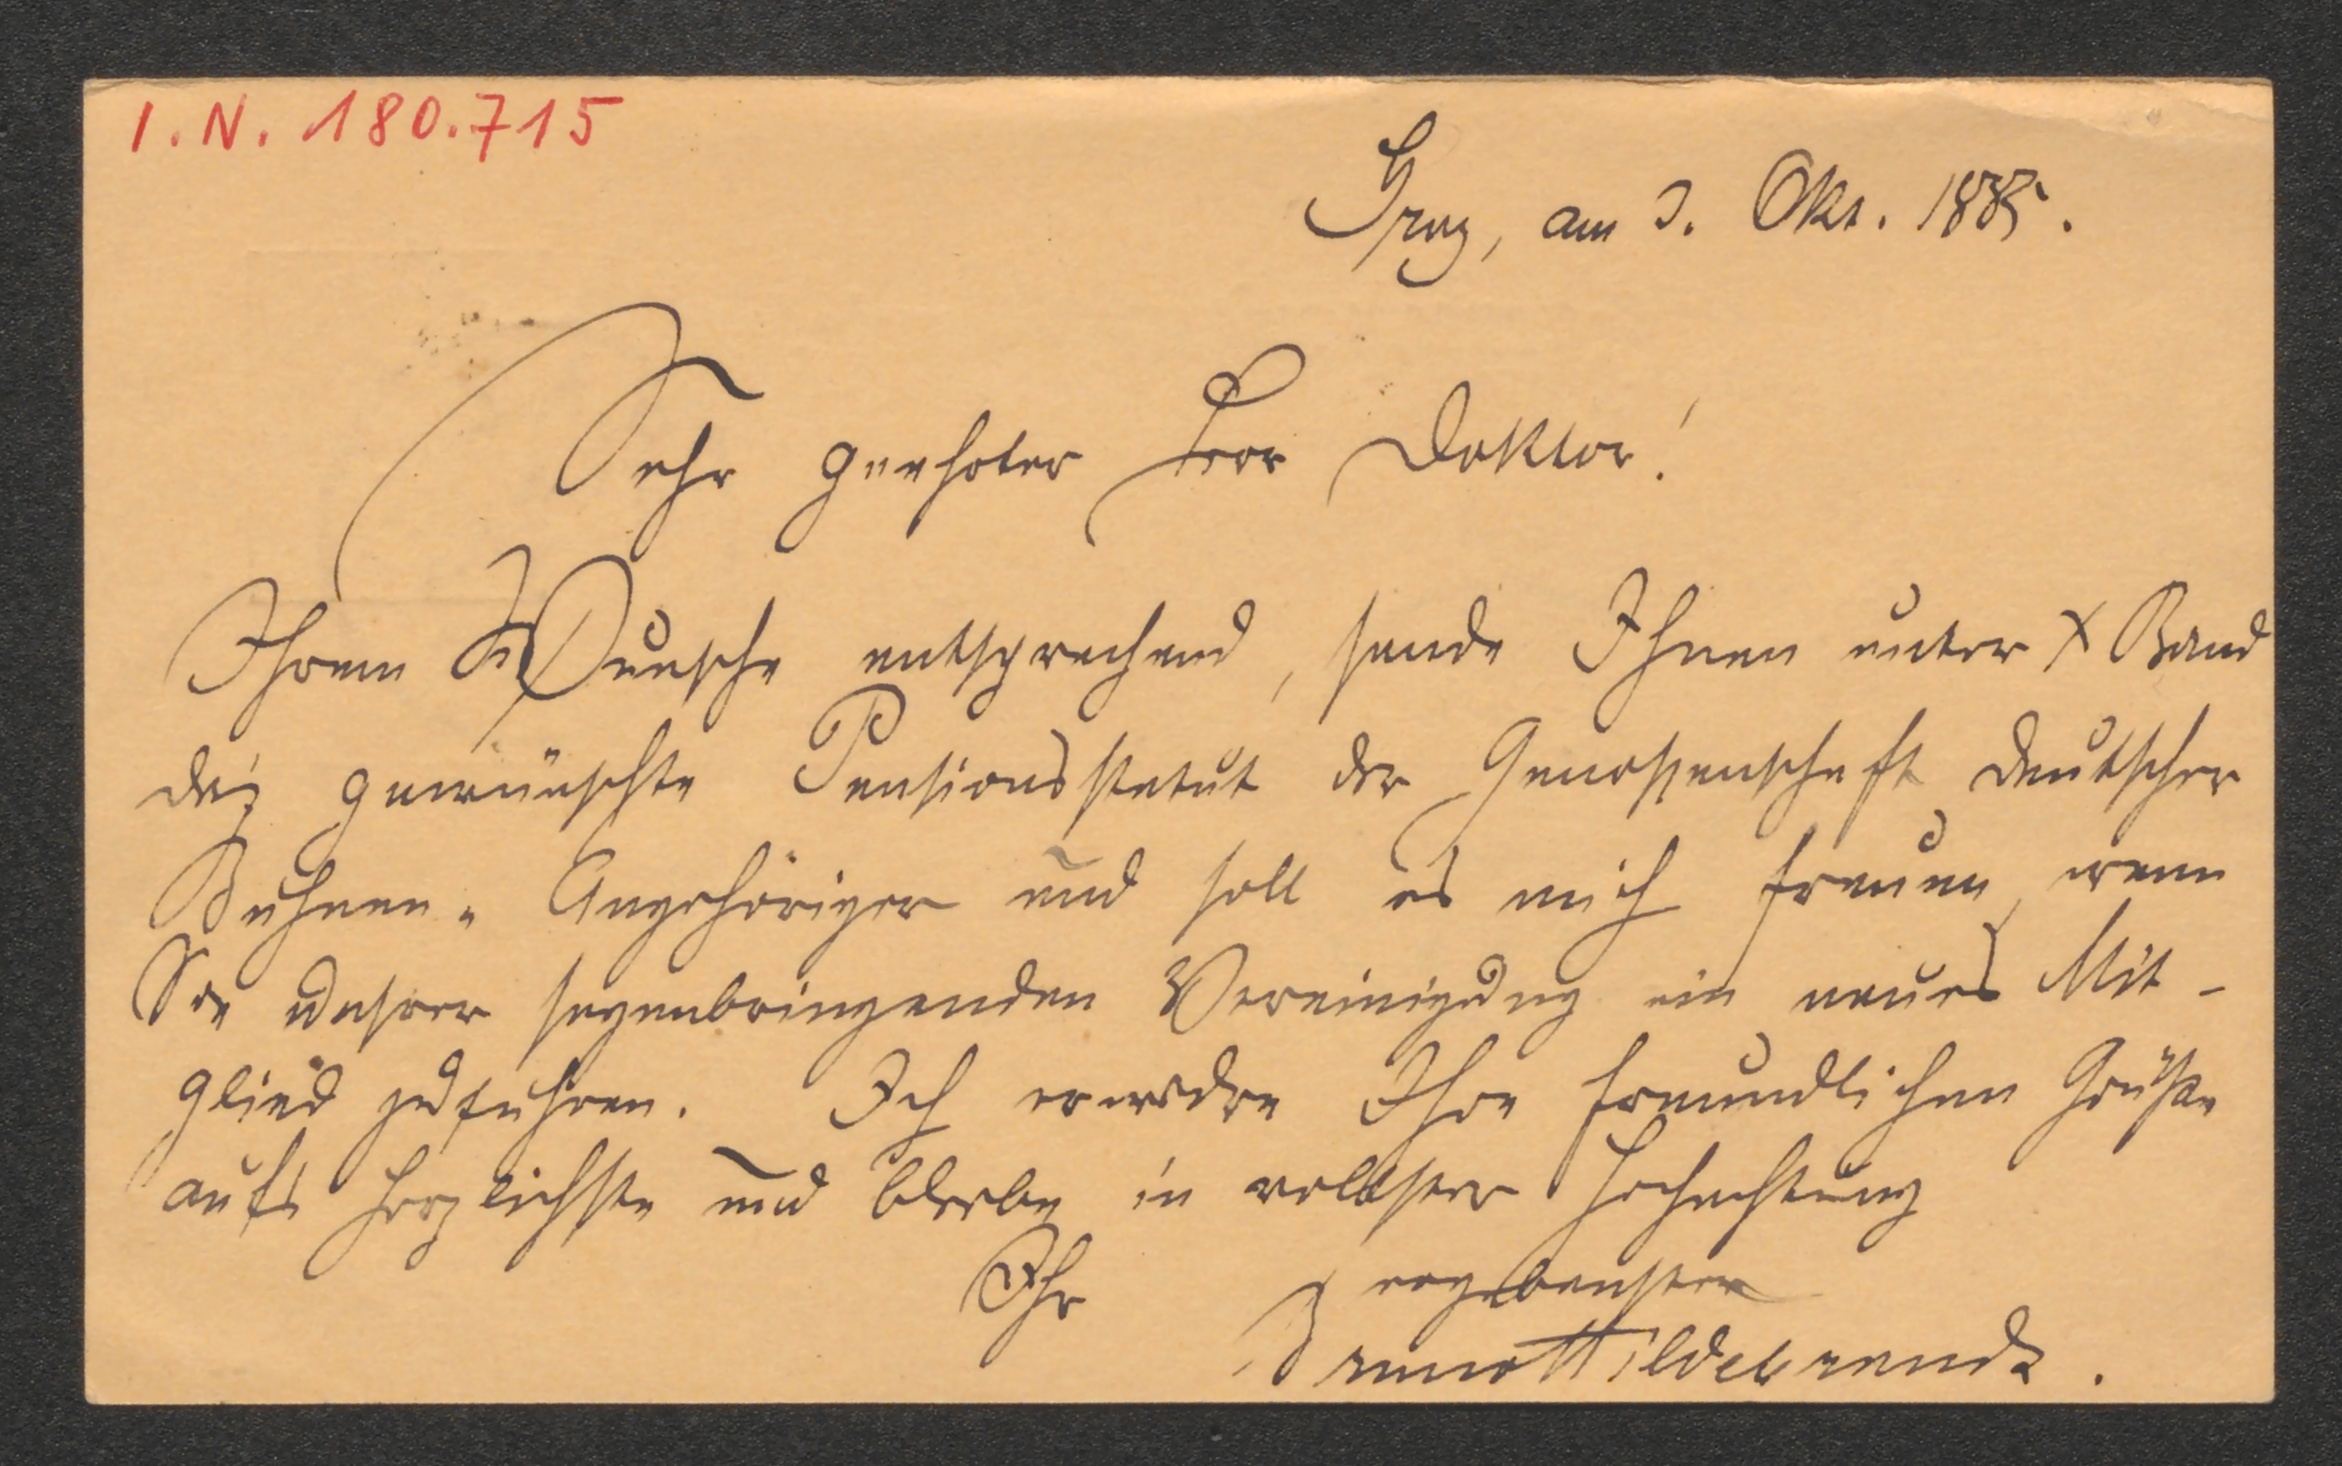 I.N. 180.715
Graz, am 3. Okt. 1885.
Sehr geehrter Herr Doktor!
Ihrem Wunsche entsprechend, sende Ihnen unter X Band
das gewünschte Pensionsstatut der Genossenschaft deutscher
Bühnen-Angehöriger und soll es mich freuen, wenn
Sie unsrer segenbringenden Vereinigung ein neues Mit-
glied zuführen. Ich erwidre Ihre freundlichen Grüße
aufs herzlichste und bleibe in vollster Hochachtung
Ihr ergebenster
Bruno Hildebrandt.